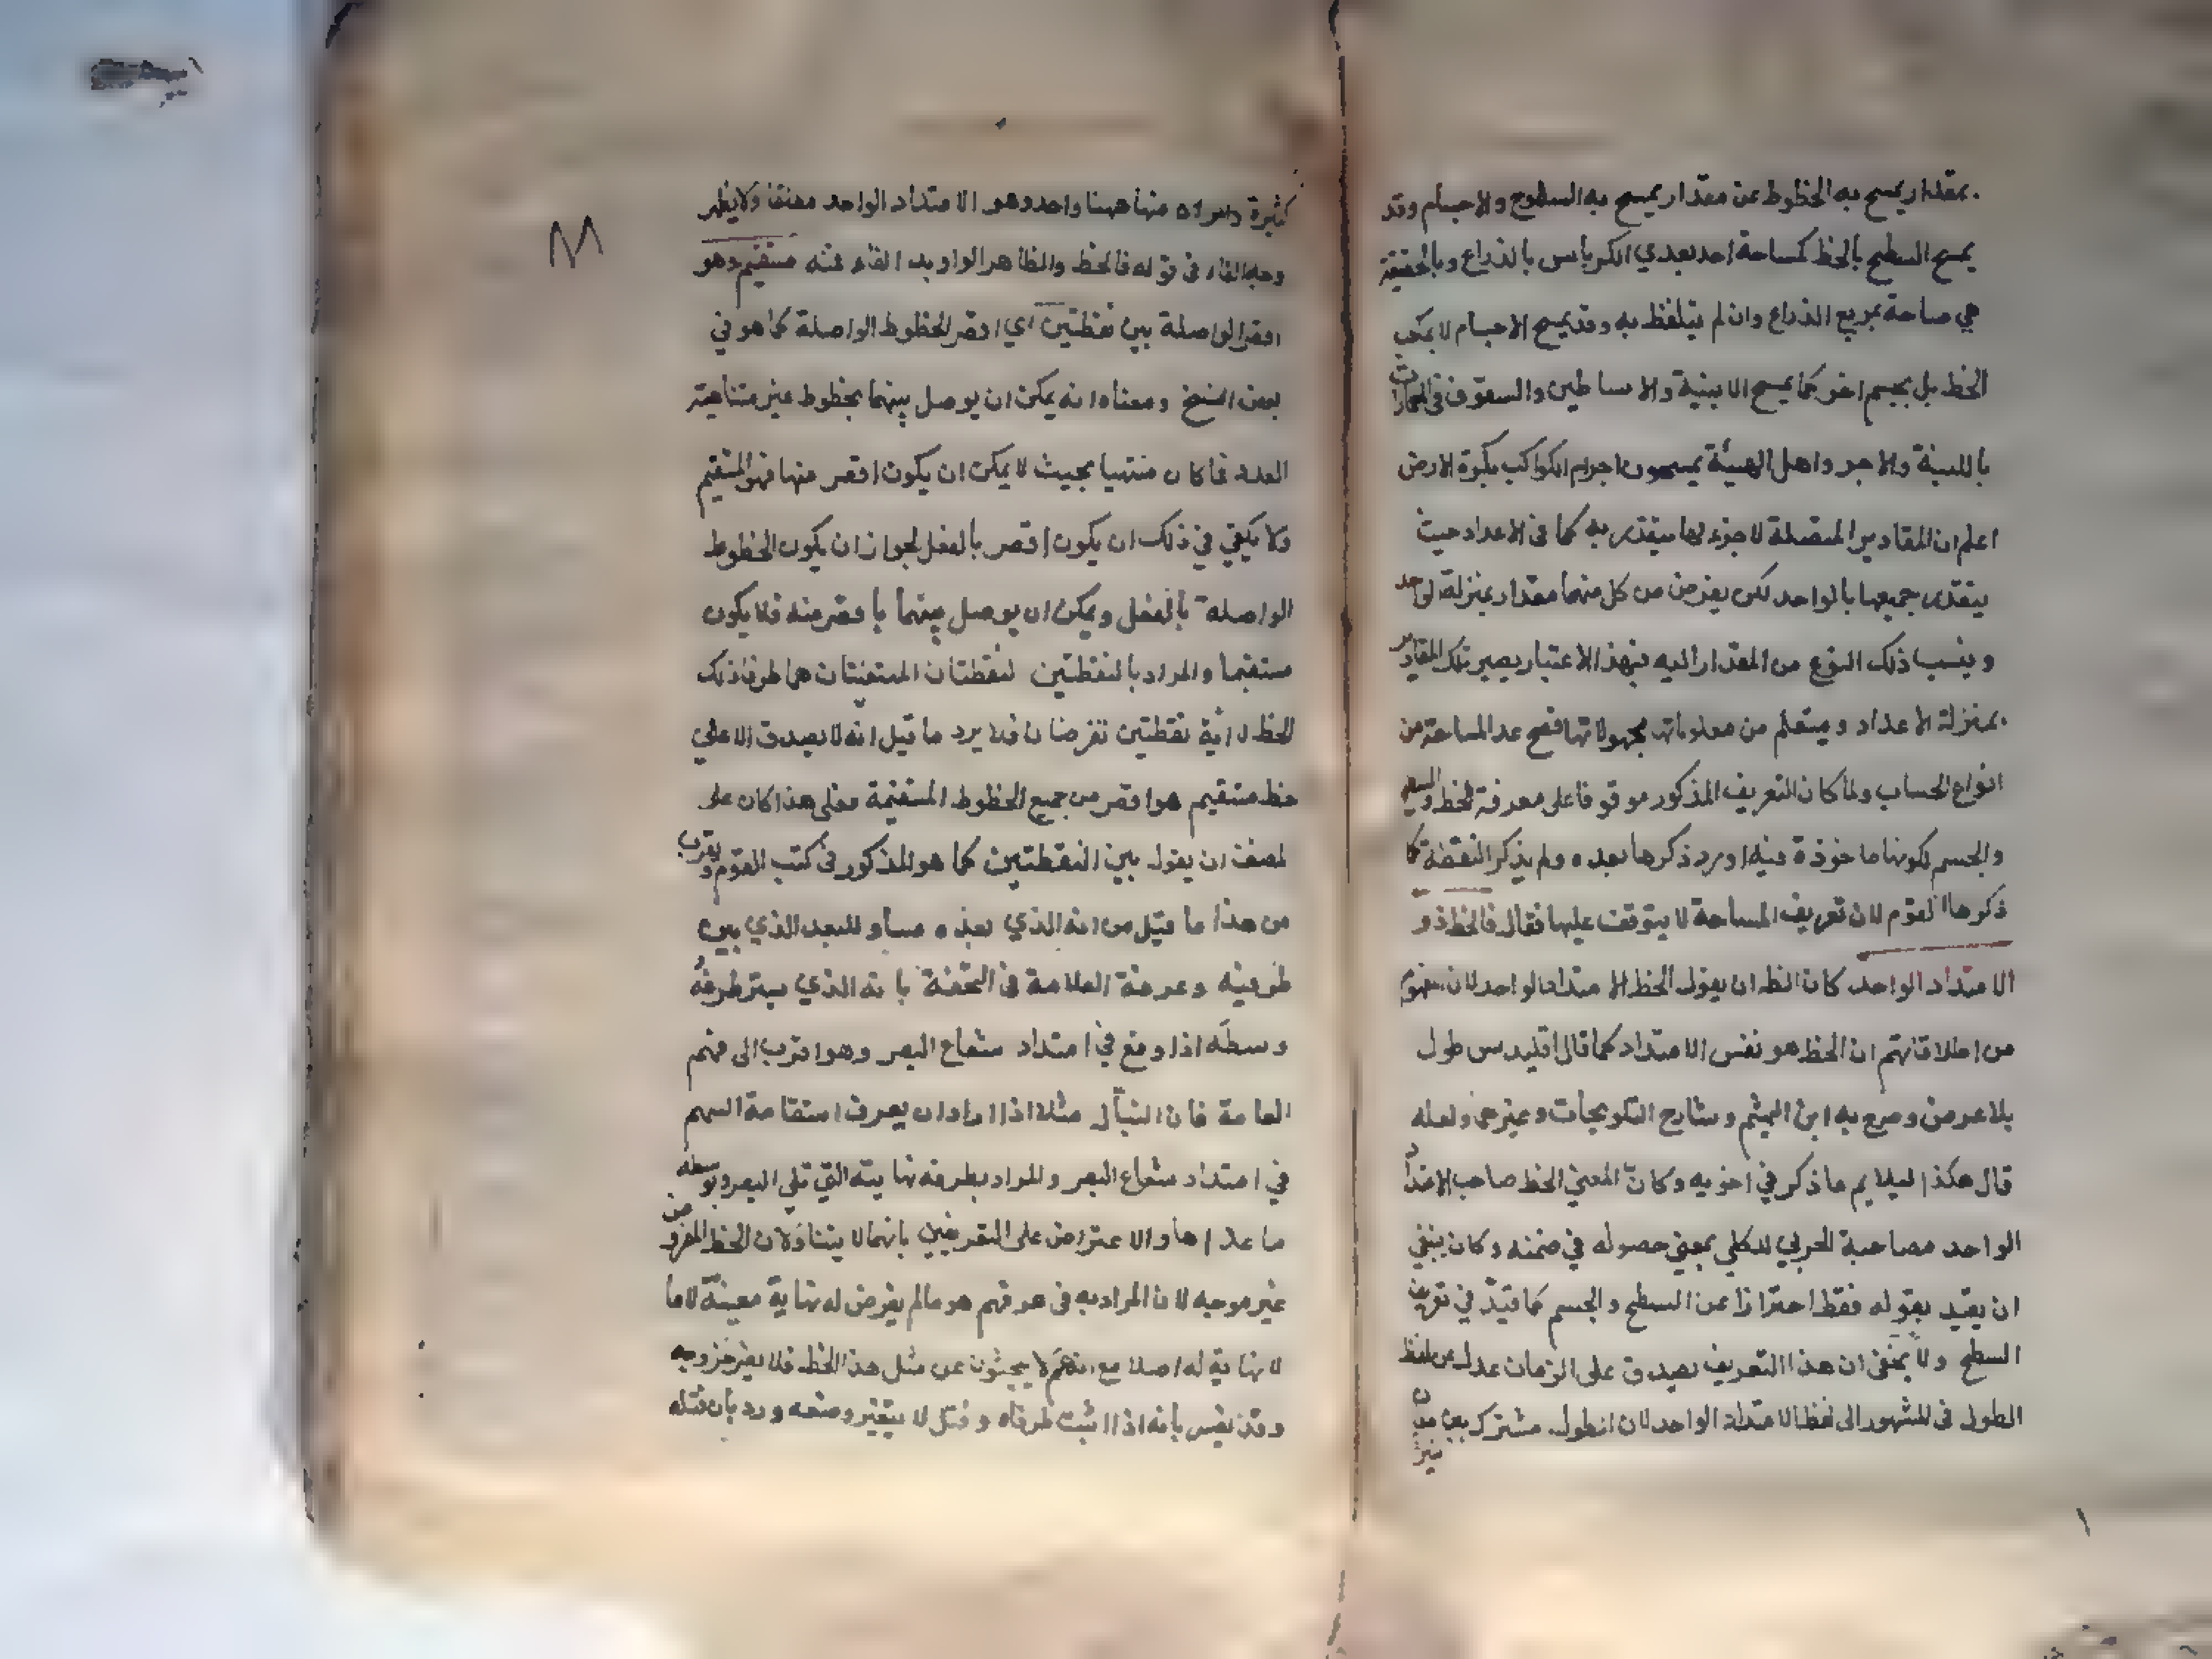 بمقدار يمسح به الخطوط عن مقدار يمسح به السطوح والاجسام وقد
يمسح السطح بالخط كمساحة احد بعدي الكرباس بالذراع وبالحقيقة
هي مساحة بمربع الذراع وان لم يتلفظ به وقد يمسح الاجسام لا بمكعب
الخط بل بجسم اخر كما يمسح الابنية والاساطين والسقوف في العمارات
باللبنة والاجر واهل الهيئة يمسحون اجرام الكواكب بكرة الارض
اعلم ان المقادير المتصلة لا جزء لها يتقدر به كما في الاعداد حيث
يتقدر جميعها بالواحد لكن يفرض من كل منهما مقدار بمنزلة الواحد
وينسب ذلك النوع من المقدار اليه فبهذا الاعتبار يصير تلك المقادير
بمنزلة الاعداد ويستعلم من معلوماتها مجهولاتها فصح عد المساحة من
انواع الحساب ولما كان التعريف المذكور موقوفا على معرفة الخط والسطح
والجسم لكونها ماخوذة فيه اورد ذكرها بعده ولم يذكر النقطة كما
ذكرها القوم لان تعريف المساحة لا يتوقف عليها فقال فالخط ذو
الامتداد الواحد كان الظ ان يقول الخط الامتداد الواحد لان المفهوم
من اطلاقاتهم ان الخط هو نفس الامتداد كما قال اقليدس طول
بلا عرض وصرح به ابن الهيثم وشارح التلويحات وغيرهما ولعله
قال هكذا ليلايم ما ذكر في اخويه وكان المعني الخط صاحب الامتداد
الواحد مصاحبة الجزئي للكلي بمعني حصوله في ضمنه وكان ينبغي
ان يقيد بقوله فقط احترازا عن السطح والجسم كما قيد في تعريف
السطح ولا يخفى ان هذا التعريف يصدق على الزمان عدل عن لفظ
الطول في المشهور الى لفظ الامتداد الواحد لان الطول مشترك بين معان
كثيرة والمراد منها ههنا واحد وهو الامتداد الواحد مطلقا ولا يظهر
وجه الفاء في قوله فالخط والظاهر الواو بدل الفاء فمنه مستقيم وهو
اقصر الواصلة بين نقطتين اي اقصر الخطوط الواصلة كما هو في
بعض النسخ ومعناه انه يمكن ان يوصل بينهما بخطوط غير متناهية
العدد فما كان منتهيا بحيث لا يمكن ان يكون اقصر منها فهو المستقيم
ولا يكفي في ذلك ان يكون اقصر بالفعل لجواز ان يكون الخطوط
الواصلة بالفعل ويمكن ان يوصل بينهما باقصر منه فلا يكون
مستقيما والمراد بالنقطتين النقطتان المتعينتان هما طرفا ذلك
الخط لا اية نقطتين تفرضان فلا يرد ما قيل انه لا يصدق الا على
خط مستقيم هو اقصر من جميع الخطوط المستقيمة فعلى هذا كان على
المصنف ان يقول بين النقطتين كما هو المذكور في كتب القوم ويقرب
من هذا ما قيل من انه الذي بعده مساو للبعد الذي بين
طرفيه وعرفه العلامة في التحفة بانه الذي يستر طرفه
وسطه اذا وقع في امتداد شعاع البصر وهو اقرب الى فهم
العامة فان النبال مثلا اذا اراد ان يعرف استقامة السهم
في امتداد شعاع البصر والمراد بطرفه نهايته التي تلي البصر وبوسطه
ما عداها والاعتراض على التعريفين بانهما لا يتناولان الخط المفروض
غير موجه لان المراد به في عرفهم هو ما لم يفرض له نهاية معينة لا ما
لا نهاية له اصلا مع انهم لا يبحثون عن مثل هذا الخط فلا يضر خروجه
وقد يفسر بانه اذا اثبت طرفاه وفتل لا يتغير وضعه ورد بان فتله